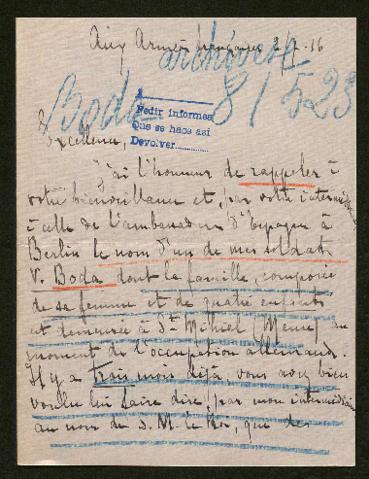 Aux Armées françaises 2/7.16
archivese
Boda 81523
A
Pedir informes
Que se hace así
Devolver
Excellence,
J'ai l'honneur de rappeler à
votre bienveillance et, par votre intermédiaire
à celle de l'ambassadeur d'Espagne à
Berlin le nom d'un de mes soldats
V. Boda dont la famille, composée
de sa femme et de quatre enfants
est demeurée à St Mihiel (Meuse) au
moment de l'occupation allemande.
Il y a trois mois déjà, vous avez bien
voulu lui faire dire, par mon intermédiaire
au nom de S. M. le Roi, que des